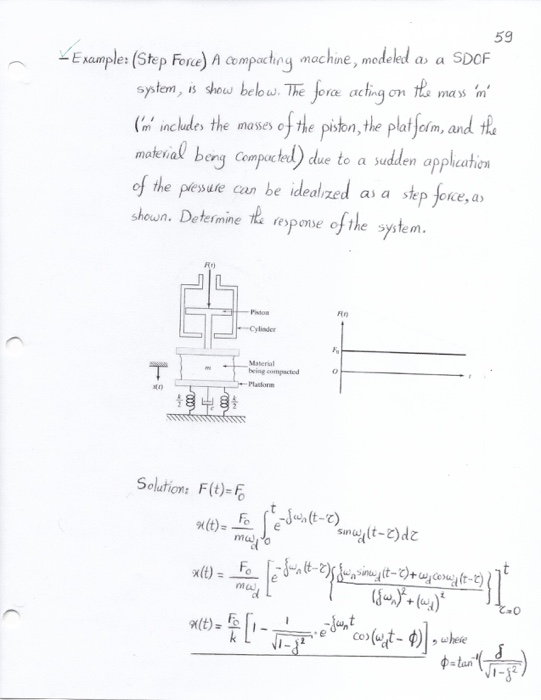 59
Example: (Step Force) A compacting machine, modeled as a SDOF
system, is show below. The force acting on the mass 'm'
('m' includes the masses of the piston, the platform, and the
material being compacted) due to a sudden application
of the pressure can be idealized as a step force, as
shown. Determine the response of the system.
F(t)
Piston
Cylinder
Material
being compacted
m
Platform
x(t)
k/2
c
k/2
F(t)
F₀
0
t
Solution: F(t)=F₀
x(t) = F₀/(mω_d) ∫₀ᵗ e^(-ζω_n(t-τ)) sin ω_d(t-τ)dτ
x(t) = F₀/(mω_d) [e^(-ζω_n(t-τ)) {(ζω_n sin ω_d(t-τ)+ω_d cos ω_d(t-τ))/((ζω_n)²+(ω_d)²)}]^t_τ=0
x(t) = F₀/k [1 - 1/√(1-ζ²) · e^(-ζω_n t) cos(ω_d t - φ)], where
φ=tan⁻¹(ζ/√(1-ζ²))